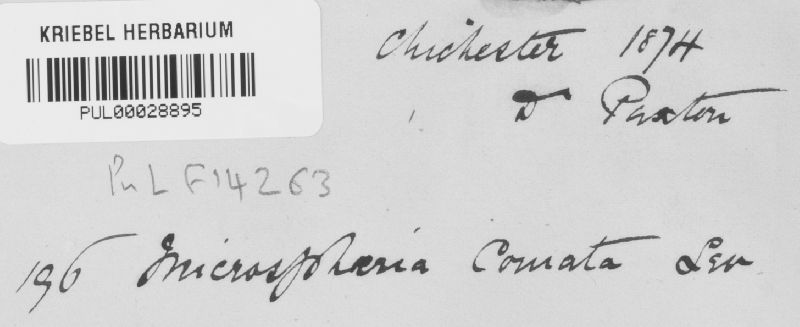 KRIEBEL HERBARIUM
PUL00028895
Chichester 1874
Dr Paxton
PuL F14263
196 Microsphæria Comata Lev